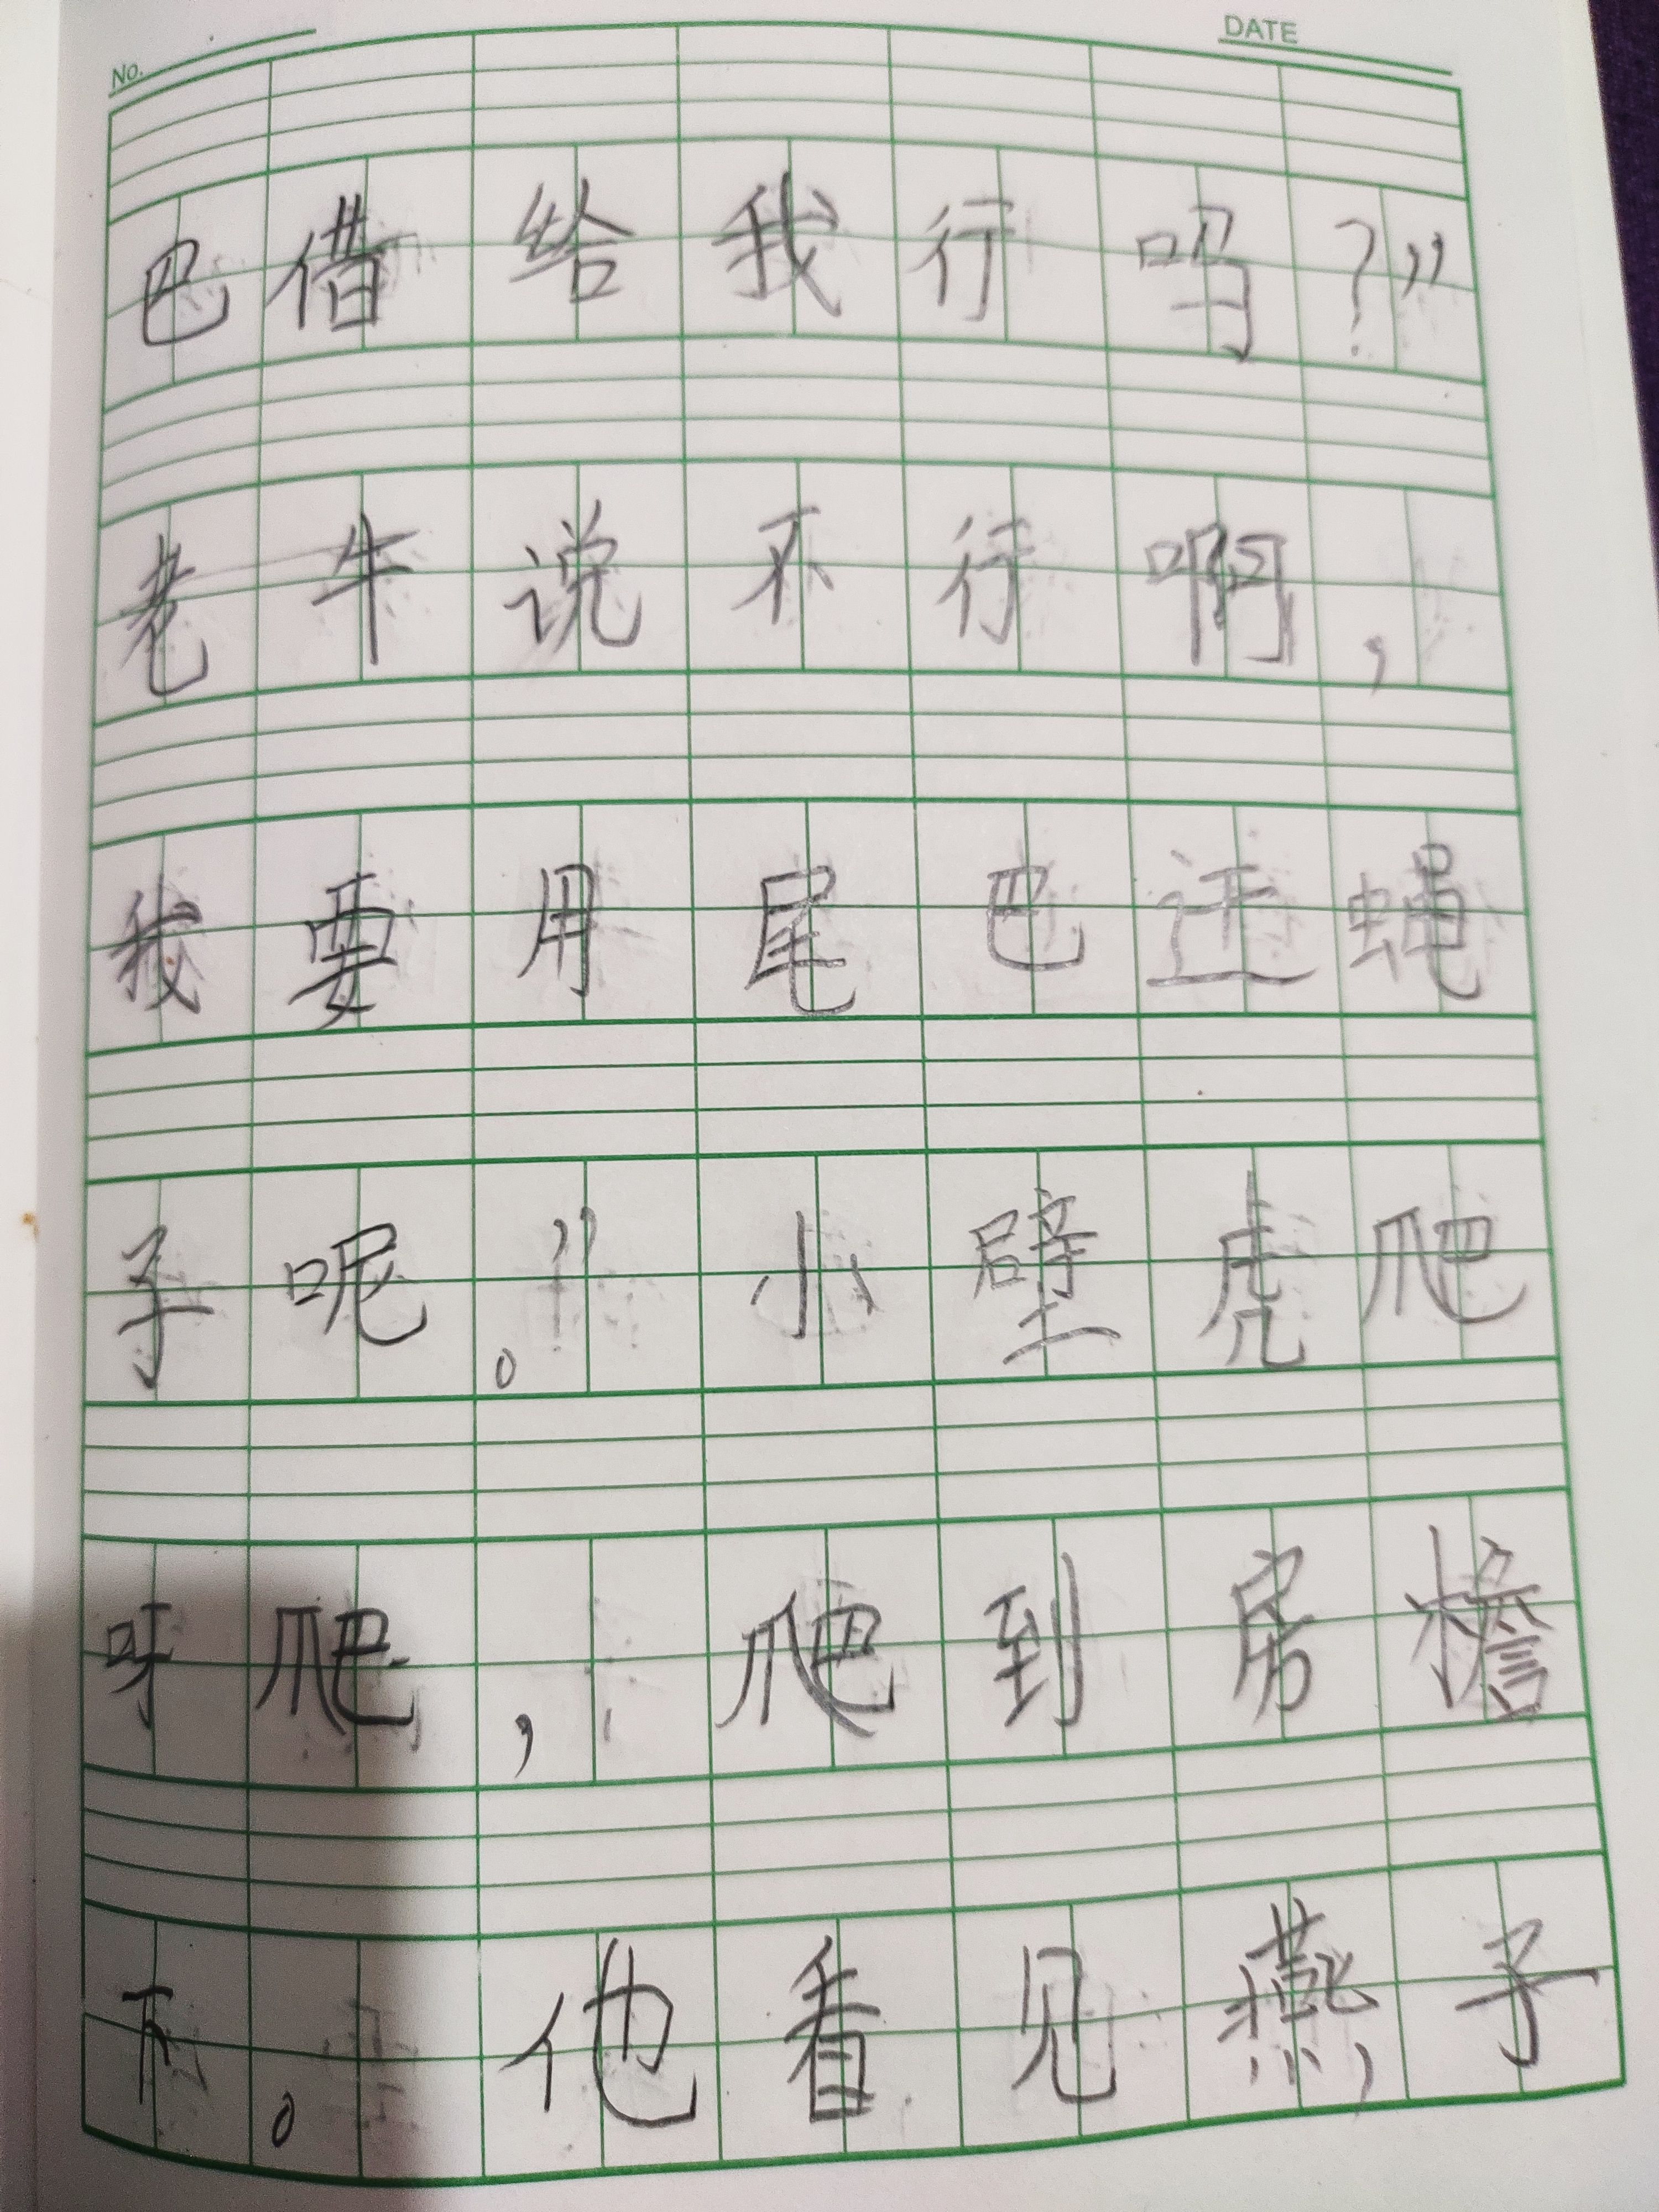 No. DATE
巴借给我行吗？”
老牛说不行啊，
我要用尾巴蝇
子呢。”小壁虎爬
呀爬，爬到房檐
下。他看见燕子